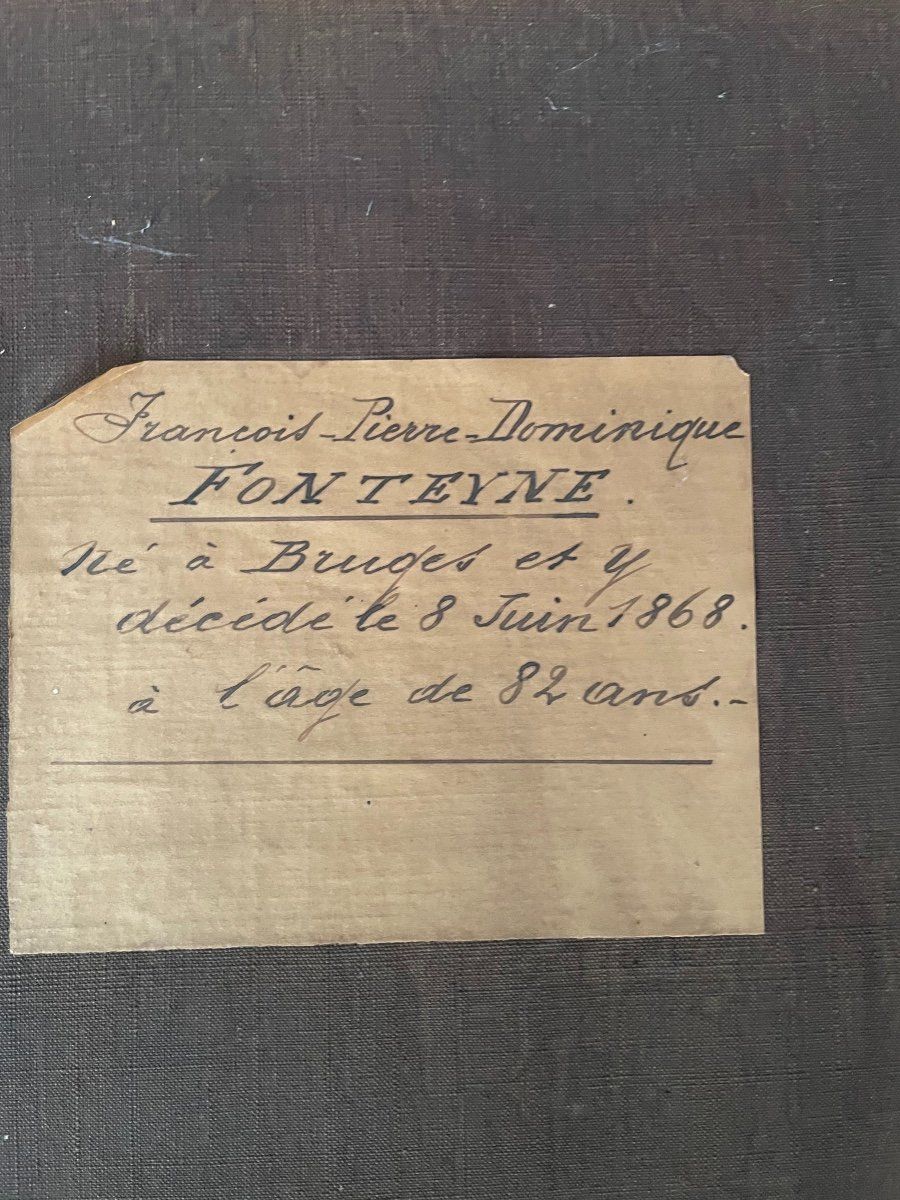 François-Pierre-Dominique
FONTEYNE.
Né à Bruges et y
décédé le 8 Juin 1868.
à l'âge de 82 ans.-